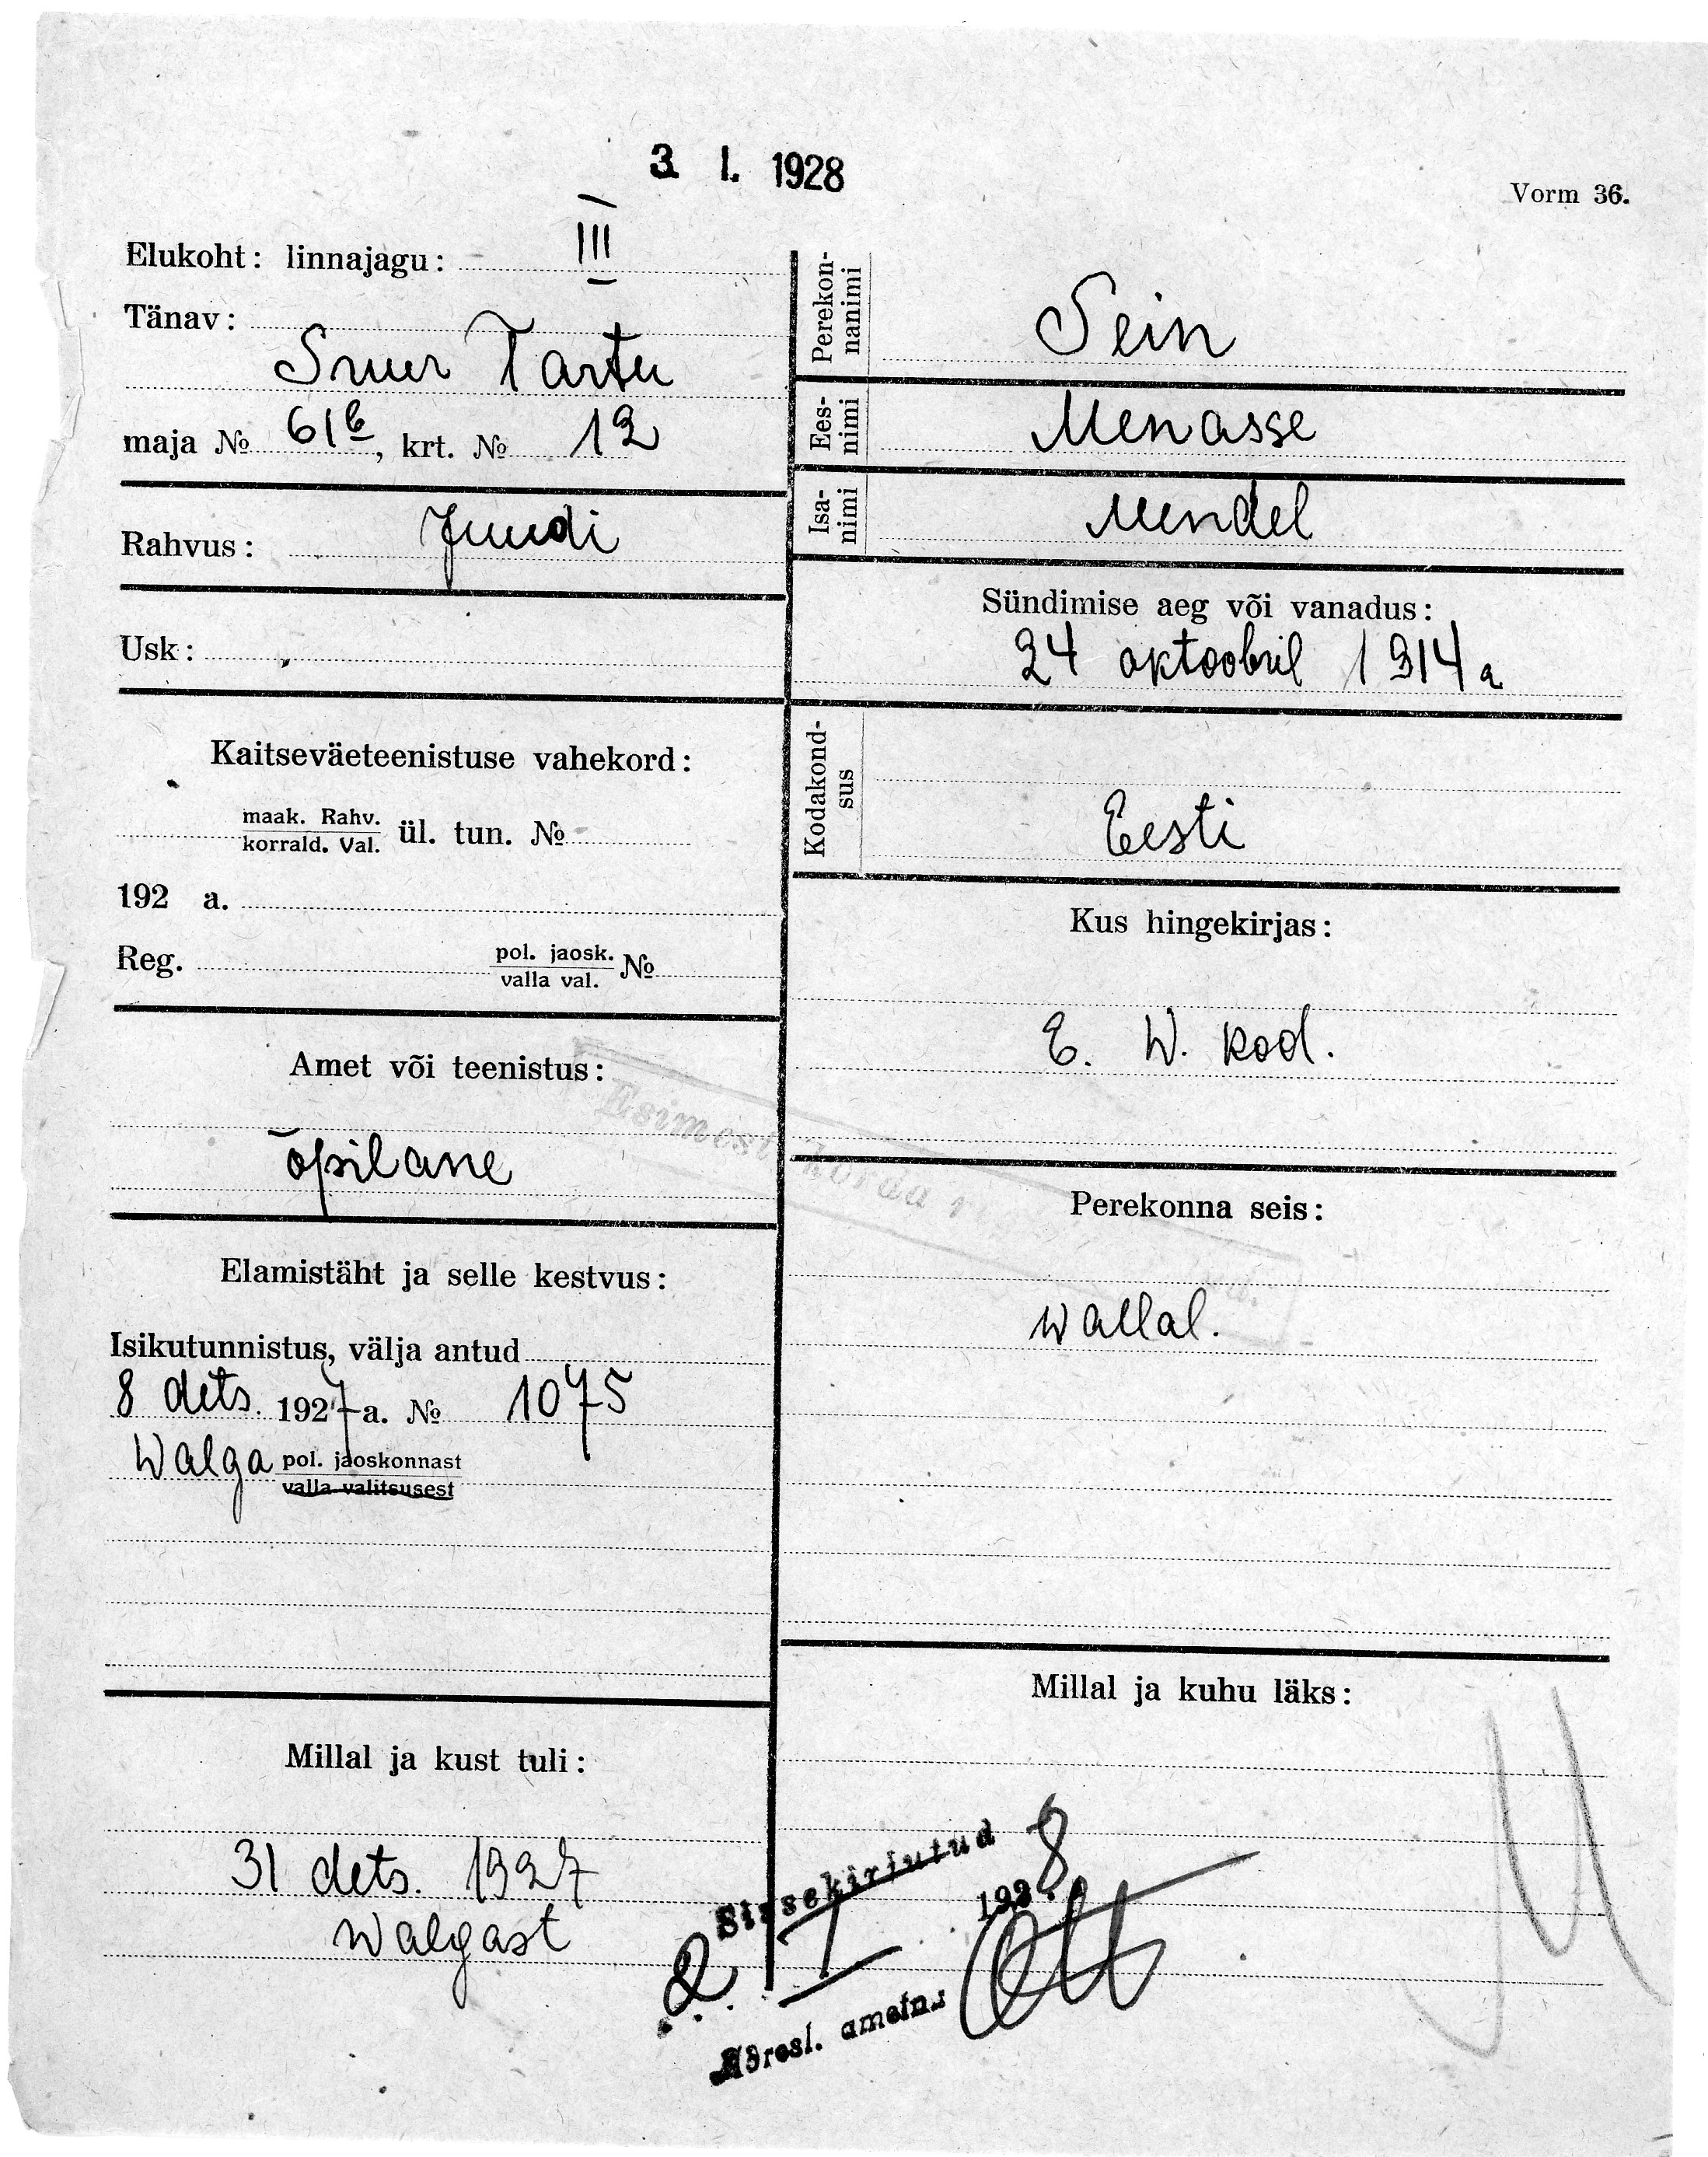 3. I. 1928
Vorm 36.
Elukoht: linnajagu: III
Tänav:
Suur Tartu
maja № 61b, krt. № 12
Rahvus: Juudi
Usk:
Kaitseväeteenistuse vahekord:
maak. Rahv.
korrald. Val. ül. tun. №
192 a.
Reg. pol. jaosk. №
valla val.
Amet või teenistus:
õpilane
Elamistäht ja selle kestvus:
Isikutunnistus, välja antud
8 dets. 1927 a. № 1075
Walga pol. jaoskonnast
valla valitsusest
Millal ja kust tuli:
31 dets. 1927
Walgast
Perekonnanimi Sein
Eesnimi Menasse
Isanimi Mendel
Sündimise aeg või vanadus:
24 oktoobril 1914 a
Kodakondsus
Eesti
Kus hingekirjas:
E. W. kod.
Esimest korda
Perekonna seis:
wallal.
Millal ja kuhu läks:
Sissekirjutud
2 I 1928